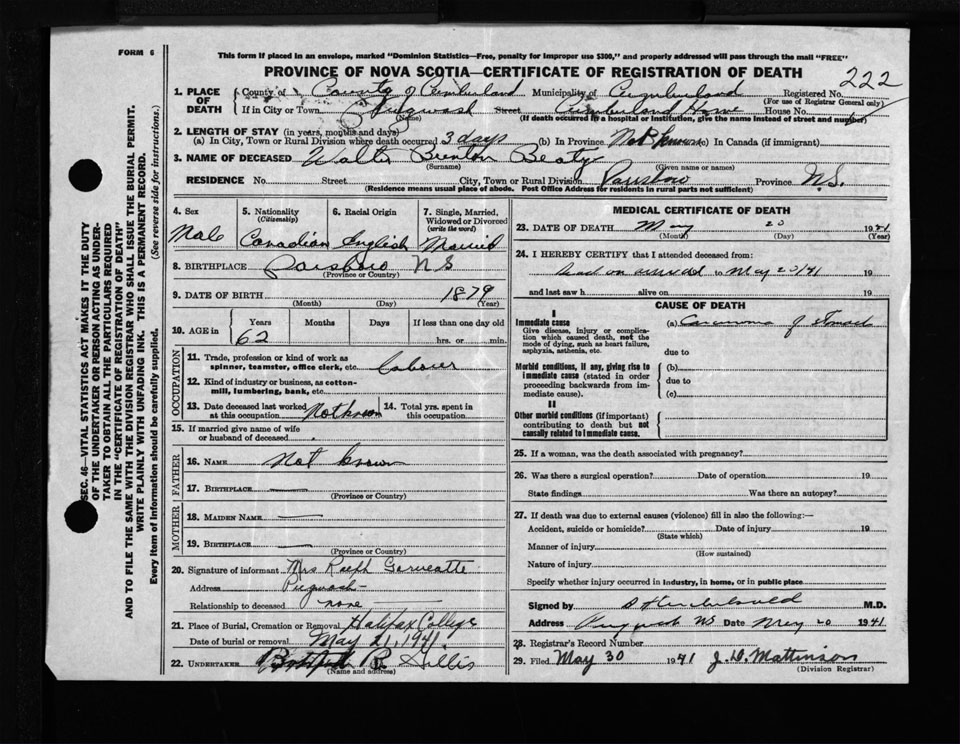 FORM 6
This form if placed in an envelope, marked "Dominion Statistics—Free, penalty for improper use $300," and properly addressed will pass through the mail "FREE"
PROVINCE OF NOVA SCOTIA—CERTIFICATE OF REGISTRATION OF DEATH
222
1. PLACE OF DEATH
County of County of Cumberland Municipality of Cumberland Registered No.
(For use of Registrar General only)
If in City or Town Pugwash Street Cumberland Home House No.
(Name) (If death occurred in a hospital or institution, give the name instead of street and number)
2. LENGTH OF STAY (in years, months and days)
(a) In City, Town or Rural Division where death occurred 3 days (b) In Province Not known (c) In Canada (if immigrant)
3. NAME OF DECEASED Walter Brenton Beaty
(Surname) (Given name or names)
RESIDENCE No. Street City, Town or Rural Division Parrsboro Province N.S.
(Residence means usual place of abode. Post Office Address for residents in rural parts not sufficient)
4. Sex
Male
5. Nationality (Citizenship)
Canadian
6. Racial Origin
English
7. Single, Married, Widowed or Divorced (write the word)
Married
8. BIRTHPLACE Parsboro N S
(Province or Country)
9. DATE OF BIRTH 1879
(Month) (Day) (Year)
10. AGE in Years Months Days If less than one day old
62 hrs. or min.
OCCUPATION
11. Trade, profession or kind of work as spinner, teamster, office clerk, etc. Labourer
12. Kind of industry or business, as cotton-mill, lumbering, bank, etc.
13. Date deceased last worked at this occupation Not known
14. Total yrs. spent in this occupation.
15. If married give name of wife or husband of deceased
FATHER
16. NAME Not known
17. BIRTHPLACE —
(Province or Country)
MOTHER
18. MAIDEN NAME —
19. BIRTHPLACE —
(Province or Country)
20. Signature of informant Mrs Ralph
Address Pugwash
Relationship to deceased none
21. Place of Burial, Cremation or Removal Halifax College
Date of burial or removal May 21, 1941.
22. UNDERTAKER R. Gillis
(Name and address)
MEDICAL CERTIFICATE OF DEATH
23. DATE OF DEATH May 20 1941
(Month) (Day) (Year)
24. I HEREBY CERTIFY that I attended deceased from:
dead on arrival to May 20/41 19
and last saw h alive on 19
CAUSE OF DEATH
I
Immediate cause
Give disease, injury or complication which caused death, not the mode of dying, such as heart failure, asphyxia, asthenia, etc.
(a) Carcinoma of
due to
Morbid conditions, if any, giving rise to immediate cause (stated in order proceeding backwards from immediate cause).
(b)
due to
(c)
II
Other morbid conditions (if important) contributing to death but not causally related to immediate cause.
25. If a woman, was the death associated with pregnancy?
26. Was there a surgical operation? Date of operation 19
State findings Was there an autopsy?
27. If death was due to external causes (violence) fill in also the following:—
Accident, suicide or homicide? Date of injury 19
(State which)
Manner of injury
(How sustained)
Nature of injury
Specify whether injury occurred in industry, in home, or in public place
Signed by M.D.
Address Pugwash NS Date May 20 1941
28. Registrar's Record Number
29. Filed May 30 1941 J. D. Mattinson
(Division Registrar)
SEC. 46—VITAL STATISTICS ACT MAKES IT THE DUTY
OF THE UNDERTAKER OR PERSON ACTING AS UNDER-
TAKER TO OBTAIN ALL THE PARTICULARS REQUIRED
IN THE "CERTIFICATE OF REGISTRATION OF DEATH"
AND TO FILE THE SAME WITH THE DIVISION REGISTRAR WHO SHALL ISSUE THE BURIAL PERMIT.
WRITE PLAINLY WITH UNFADING INK. THIS IS A PERMANENT RECORD.
Every item of Information should be carefully supplied. (See reverse side for instructions.)